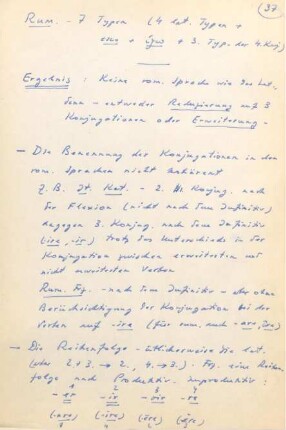 (37)
Rum. - 7 Typen (4 lat. Typen +
esc + ez + 3. Typ. der 4. Konj)
Ergebnis : Keine rom. Sprache wie das Lat.
denn - entweder Reduzierung auf 3
Konjugationen oder Erweiterung -
- Die Benennung der Konjugationen in den
rom. Sprachen nicht einheitlich
Z.B. It. Kat. - 2. Konjug. nach
der Flexion (nicht nach dem Infinitiv)
dagegen 3. Konjug. nach dem Infinitiv
(-ire, -ir) trotz des Unterschieds in der
Konjugation zwischen erweiterten und
nicht erweiterten Verben
Rum. Fg. - nach dem Infinitiv - aber ohne
Berücksichtigung der Konjugation bei den
Verben auf -ire (für rum. auch -are, -ire)
- Die Reihenfolge - üblicherweise die lat.
(aber 2+3 → 2, 4 → 3). Fg. eine Reihen
folge nach Produktiv - improduktiv :
1 2 3 4
-er -ir -oir -re
(-are) (-ire) (-ēre) (-ĕre)